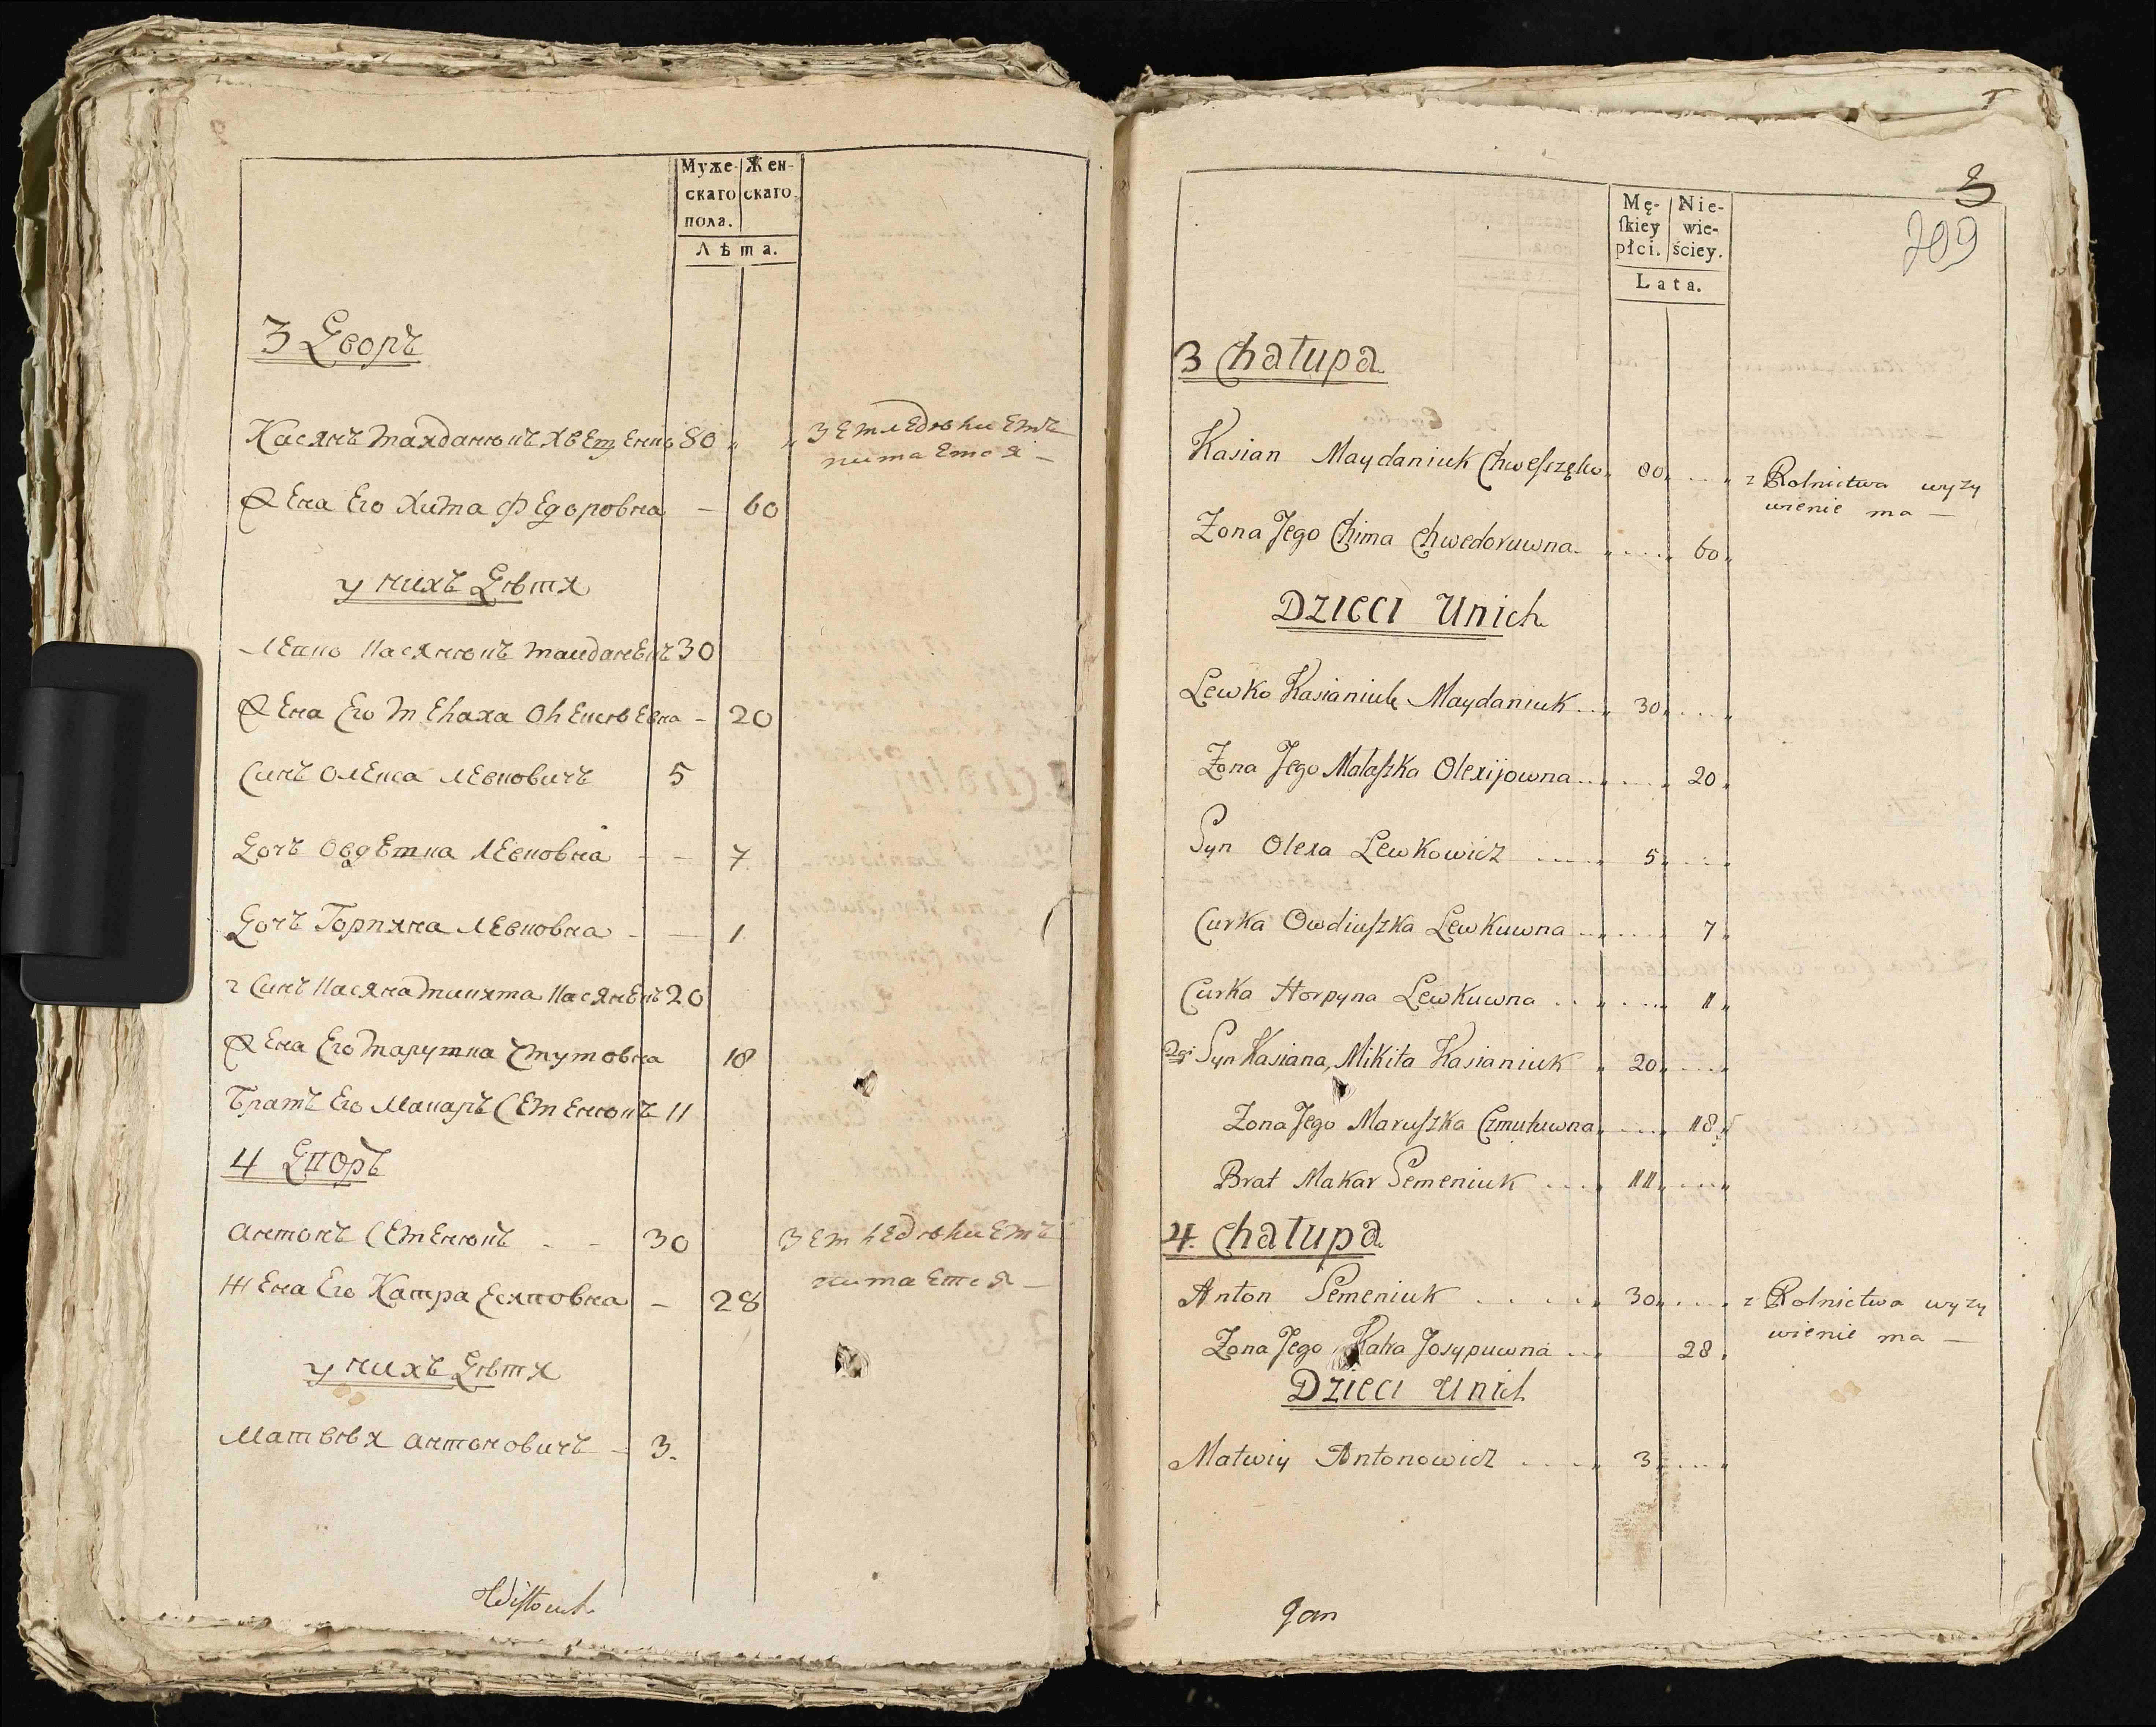 Муже-
скаго
пола.
Жен-
скаго
Лѣта.
3 Дворъ
Касянъ Майданюкъ Хвещенко 80 " " Земледѣлиемъ
питается —
Жена Его Хима Федоровна — 60
у нихъ Дѣти
Левко Касянюкъ Майданекъ 30
Жена Его Мелаха Олексѣевна – 20
Синъ Олекса Левковичъ 5
Дочъ Овдешка Левковна — — 7
Дочъ Горпина Левковна — — 1
2 Синъ Касяна Микита Касянекъ 20
Жена Его Марушка Чмутовна 18
Братъ Его Макаръ Семенюкъ 11
4 Дворъ
Антонъ Семенюкъ - - 30 Земледѣлиемъ
питается —
Жена Его Катра Есиповна — 28
у нихъ Дѣти
Матвѣй Антоновичъ — 3.
3
209
Mę-
ſkiey
płci.
Nie-
wie-
ściey.
Lata.
3 Chałupa
Kasian Maydaniuk Chweſzczęko " 80 " .... " z Rolnictwa wyzy
wienie ma —
Zona Jego Chima Chwedoruwna " .... " 60 "
Dzieci Unich
Lewko Kasianiuk Maydaniuk .. " 30 " .... "
Zona Jego Malaſzka Olexijowna .. " .... " 20 "
Syn Olexa Lewkowicz .... " 5 " .... "
Curka Owdiuſzka Lewkuwna .. " .... " 7 "
Curka Horpyna Lewkuwna .. " .... " 1 "
2gi Syn Kasiana, Mikita Kasianiuk " 20 " .... "
Zona Jego Maruſzka Czmutuwna " .... " 18 "
Brat Makar Semeniuk .... " 11 " .... "
4. Chałupa
Anton Semeniuk .... " 30 " .... z Rolnictwa wyzy
wienie ma —
Zona Jego Katra Josypuwna .. " 28 "
Dzieci Unich
Matwiy Antonowicz .... " 3 " .... "